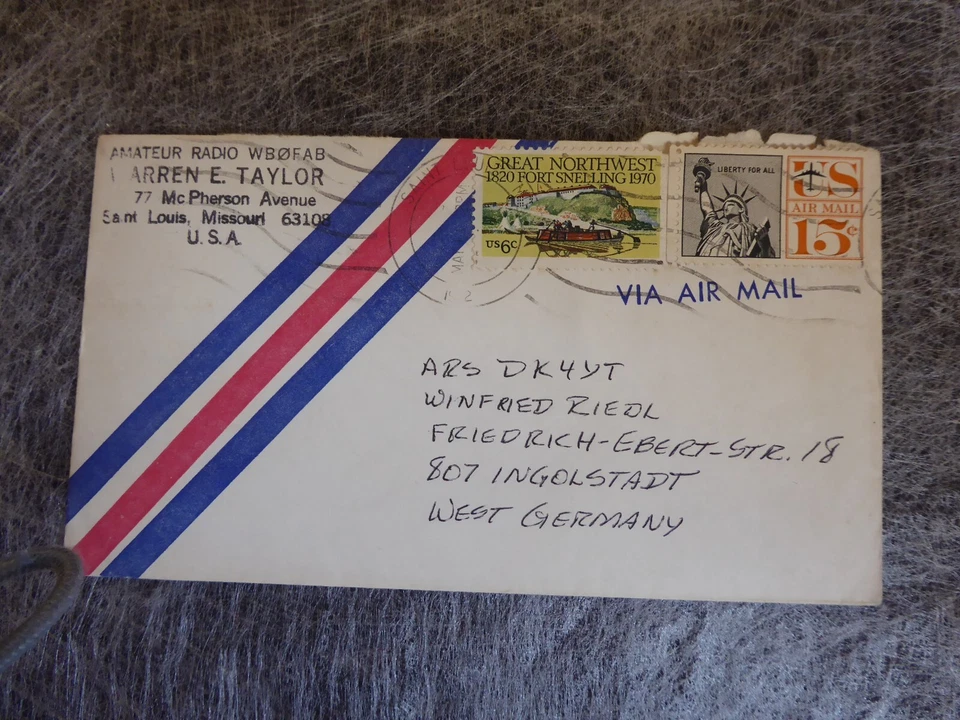 AMATEUR RADIO WBØFAB
ARREN E. TAYLOR
77 McPherson Avenue
Saint Louis, Missouri 63108
U.S.A.
GREAT NORTHWEST
1820 FORT SNELLING 1970
US 6c
LIBERTY FOR ALL
US
AIR MAIL
15c
VIA AIR MAIL
ARS DK4YT
WINFRIED RIEDL
FRIEDRICH-EBERT-STR. 18
807 INGOLSTADT
WEST GERMANY